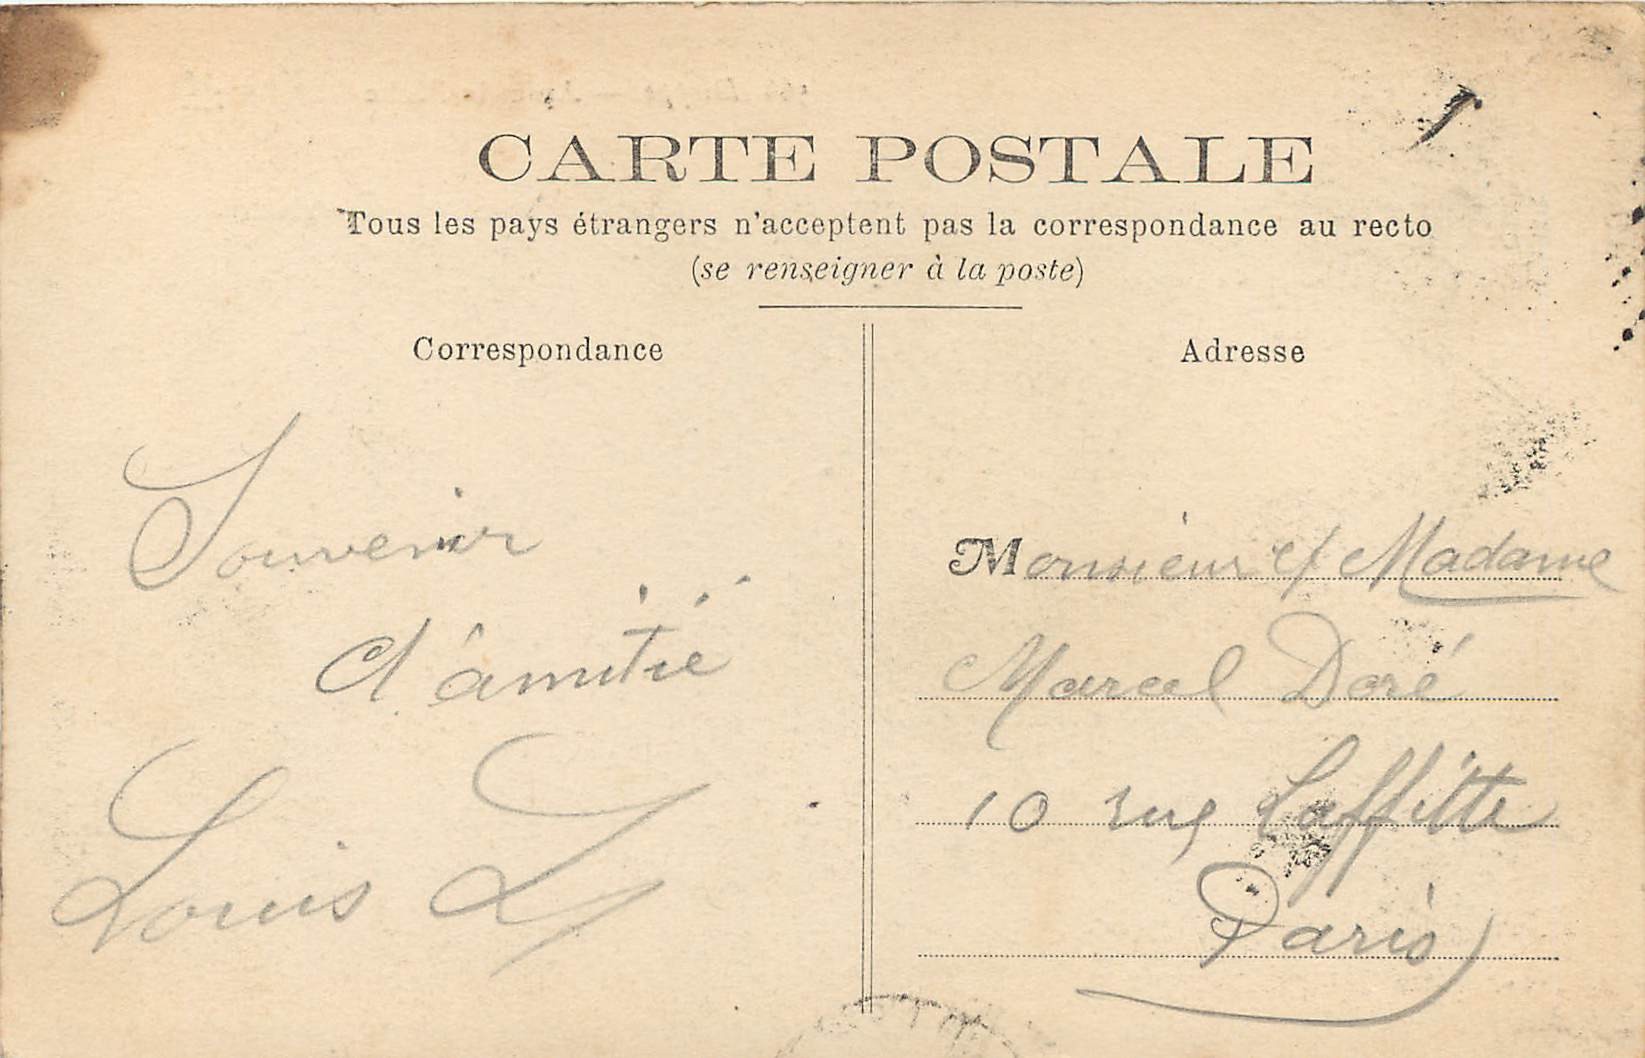 CARTE POSTALE
Tous les pays étrangers n'acceptent pas la correspondance au recto
(se renseigner à la poste)
Correspondance
Souvenir
d'amitié
Louis L
Adresse
Monsieur et Madame
Marcel Doré
10 rue Laffitte
Paris